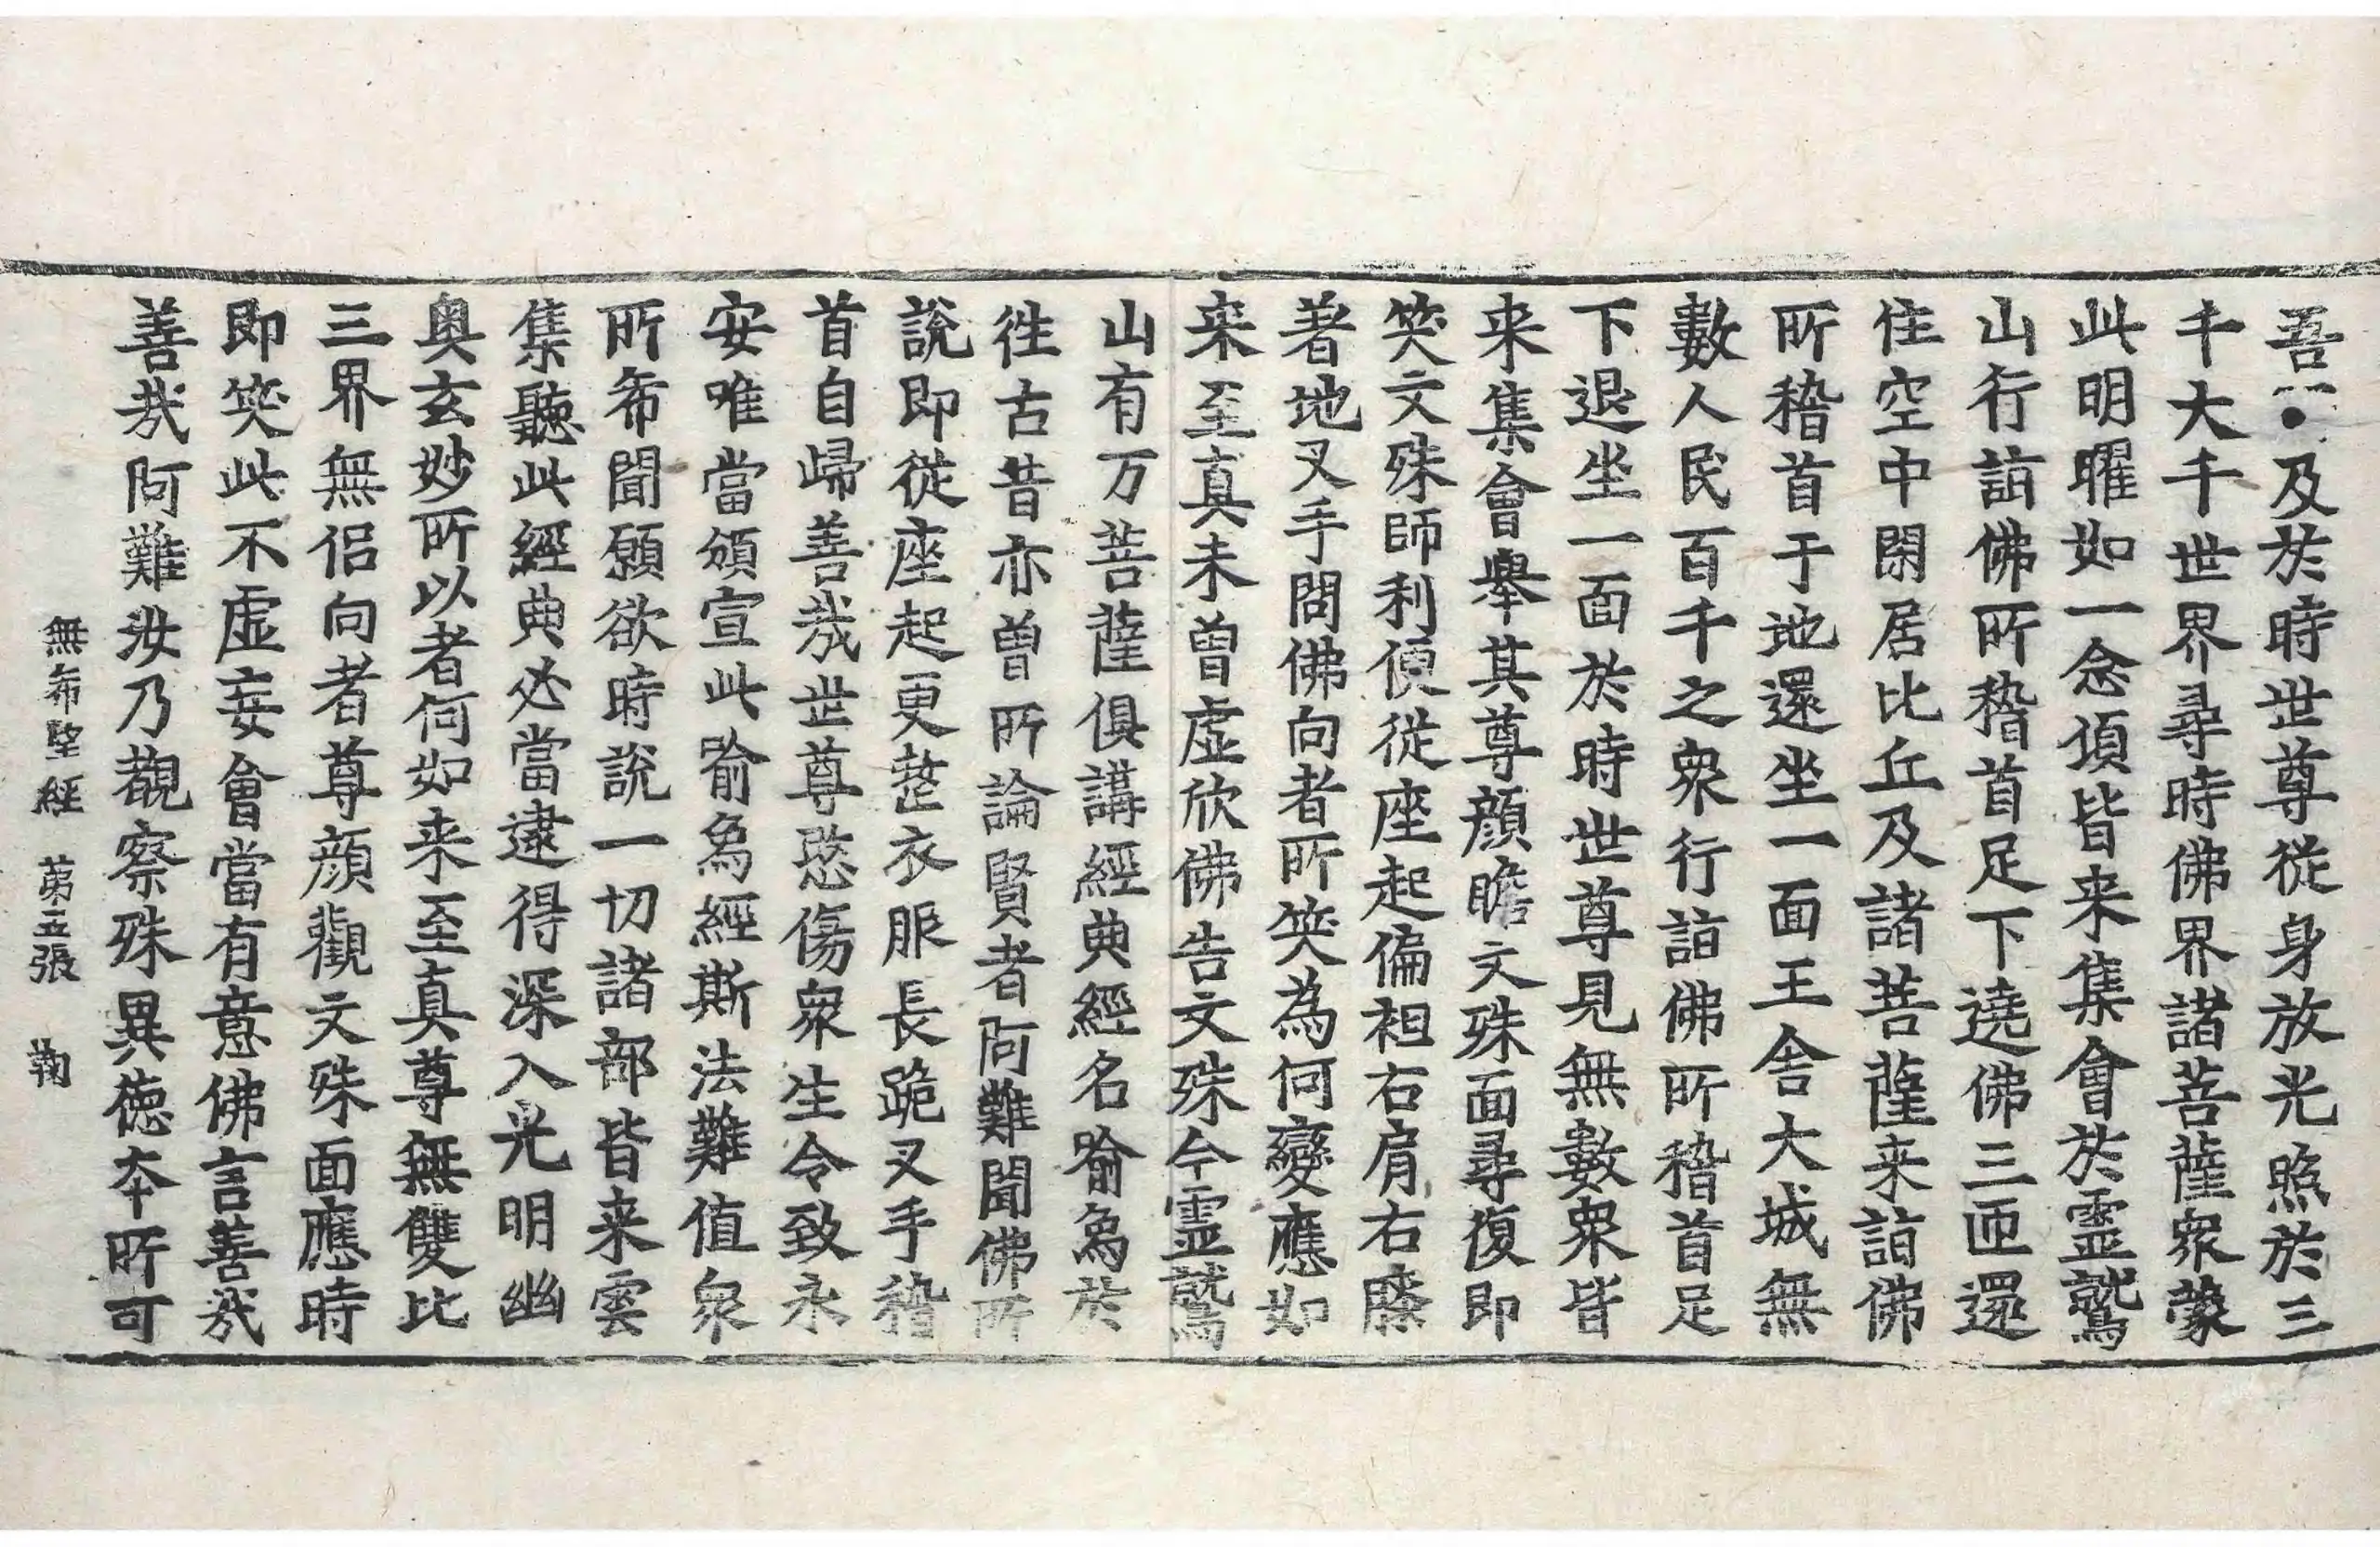 吾及於時世尊從身放光照於三
千大千世界尋時佛界諸菩薩衆蒙
此明曜如一念頃皆来集會於靈鷲
山行詣佛所稽首足下遶佛三匝還
住空中閑居比丘及諸菩薩来詣佛
所稽首于地還坐一面王舍大城無
數人民百千之衆行詣佛所稽首足
下退坐一面於時世尊見無數衆皆
来集會舉其尊顔瞻文殊面尋復即
笑文殊師利便從座起偏袒右肩右膝
著地叉手問佛向者所笑為何變應如
来至真未曾虛欣佛告文殊今靈鷲
山有万菩薩俱講經典經名喻為於
往古昔亦曽所論賢者阿難聞佛所
說即從座起更整衣服長跪叉手稽
首自歸善㢤世尊愍傷衆生令致永
安唯當頒宣此喻為經斯法難值衆
所希聞願欲時說一切諸部皆来雲
集聽此經典必當逮得深入光明幽
奧玄妙所以者何如来至真尊無雙比
三界無侶向者尊顔觀文殊面應時
即笑此不虛妄會當有意佛言善㢤
善㢤阿難汝乃觀察殊異德本所可
無希望經　苐五張　鞠